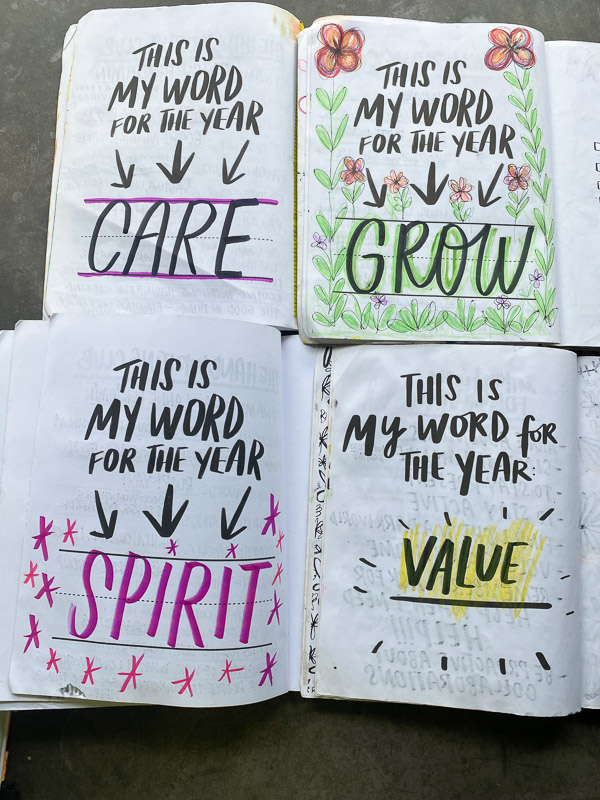 THIS IS
MY WORD
FOR THE YEAR
CARE
THIS IS
MY WORD
FOR THE YEAR
GROW
THIS IS
MY WORD
FOR THE YEAR
SPIRIT
THIS IS
My WORD for
THE YEAR:
VALUE